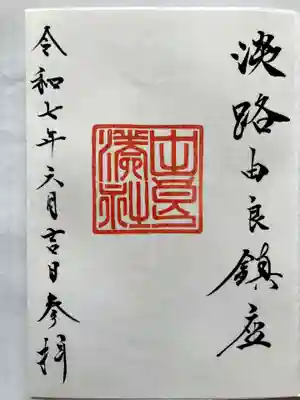 淡路由良鎮座
由良
湊社
令和七年六月吉日参拝